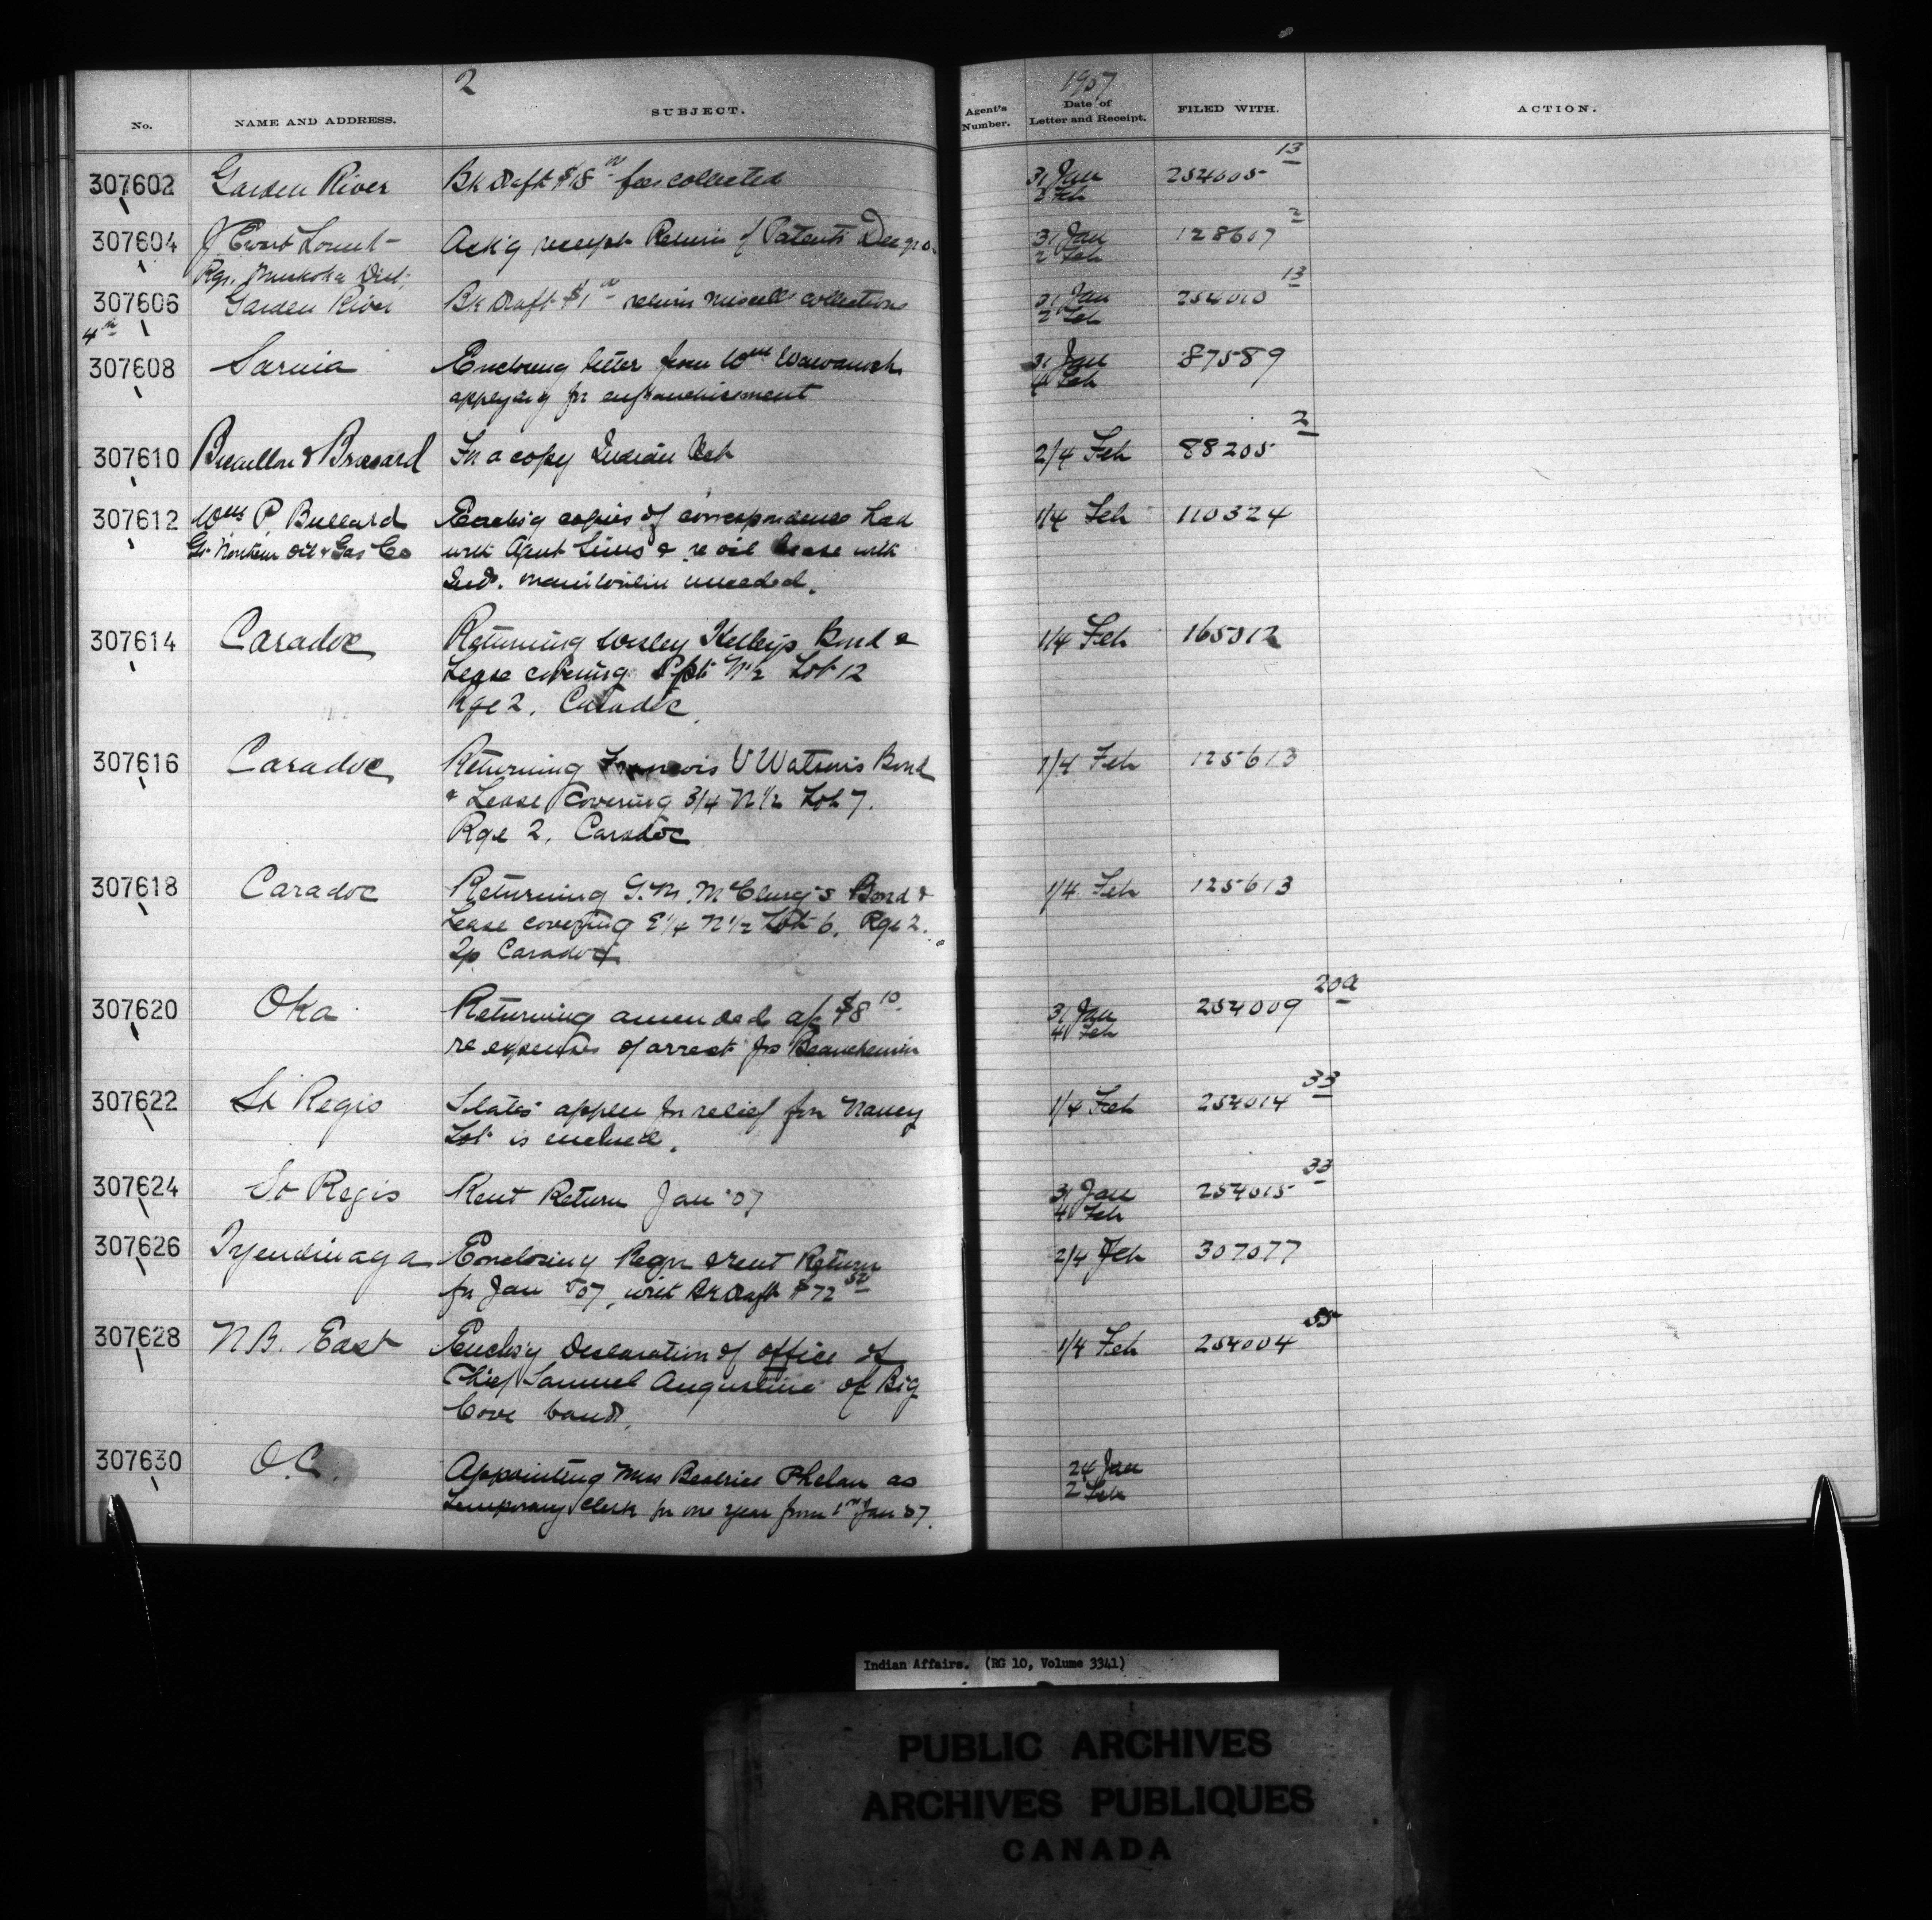 2
1907
No. NAME AND ADDRESS. SUBJECT. Agent's Number. Date of Letter and Receipt. FILED WITH. ACTION.
307602 Garden River Bk Draft $18 00 fees collected 31 Jan 254005 13
2 Feb
307604 J Ewart Lount Ack'g receipt Return of Patents Dec 31 Jan 128607 2
Rgr. Muskoka Dist. 2 Feb
307606 Garden River Bk Draft $1 00 return miscells collections 31 Jan 254010 13
2 Feb
4th
307608 Sarnia Enclosing letter from Wm Wawanosh 31 Jan 87589
applying for enfranchisement 4 Feb
307610 & Brossard For a copy Indian Act 2/4 Feb 88205 2
307612 Wm P Bullard Encls'g copies of correspondence had 1/4 Feb 110324
Gt Northern Oil & Gas Co with Agent Sims & re oil lease with
Inds. Manitoulin unceded.
307614 Caradoc Returning Wesley Kelley's Bond & 1/4 Feb 165012
Lease covering Spt N½ Lot 12
Rge 2, Caradoc
307616 Caradoc Returning Francis V Watson's Bond 1/4 Feb 125613
& Lease covering 3/4 N 1/2 Lot 7.
Rge 2, Caradoc
307618 Caradoc Returning G.M. McClurg's Bond & 1/4 Feb 125613
Lease covering E 1/4 N 1/2 Lot 6, Rge 2.
Tp Caradoc
307620 Oka Returning amended a/c $8 10 31 Jan 254009 20a
re expenses of arrest Jos Beauchemin 4 Feb
307622 St Regis States applcn for relief for Nancy 1/4 Feb 254014 33
Lot is enclosed.
307624 St Regis Rent Return Jan '07 31 Jan 254015 33
4 Feb
307626 Tyendinaga Enclosing Regn & rent Return 2/4 Feb 307077
for Jan '07, with Bk Draft $72 50
307628 N.B. East Encls'g Declaration of office of 1/4 Feb 254004 55
Chief Samuel Augustine of Big
Cove band.
307630 O.C. Appointing Miss Beatrice Phelan as 24 Jan
temporary clerk for one year from 1st Jan 07. 2 Feb
Indian Affairs. (RG 10, Volume 3341)
PUBLIC ARCHIVES
ARCHIVES PUBLIQUES
CANADA